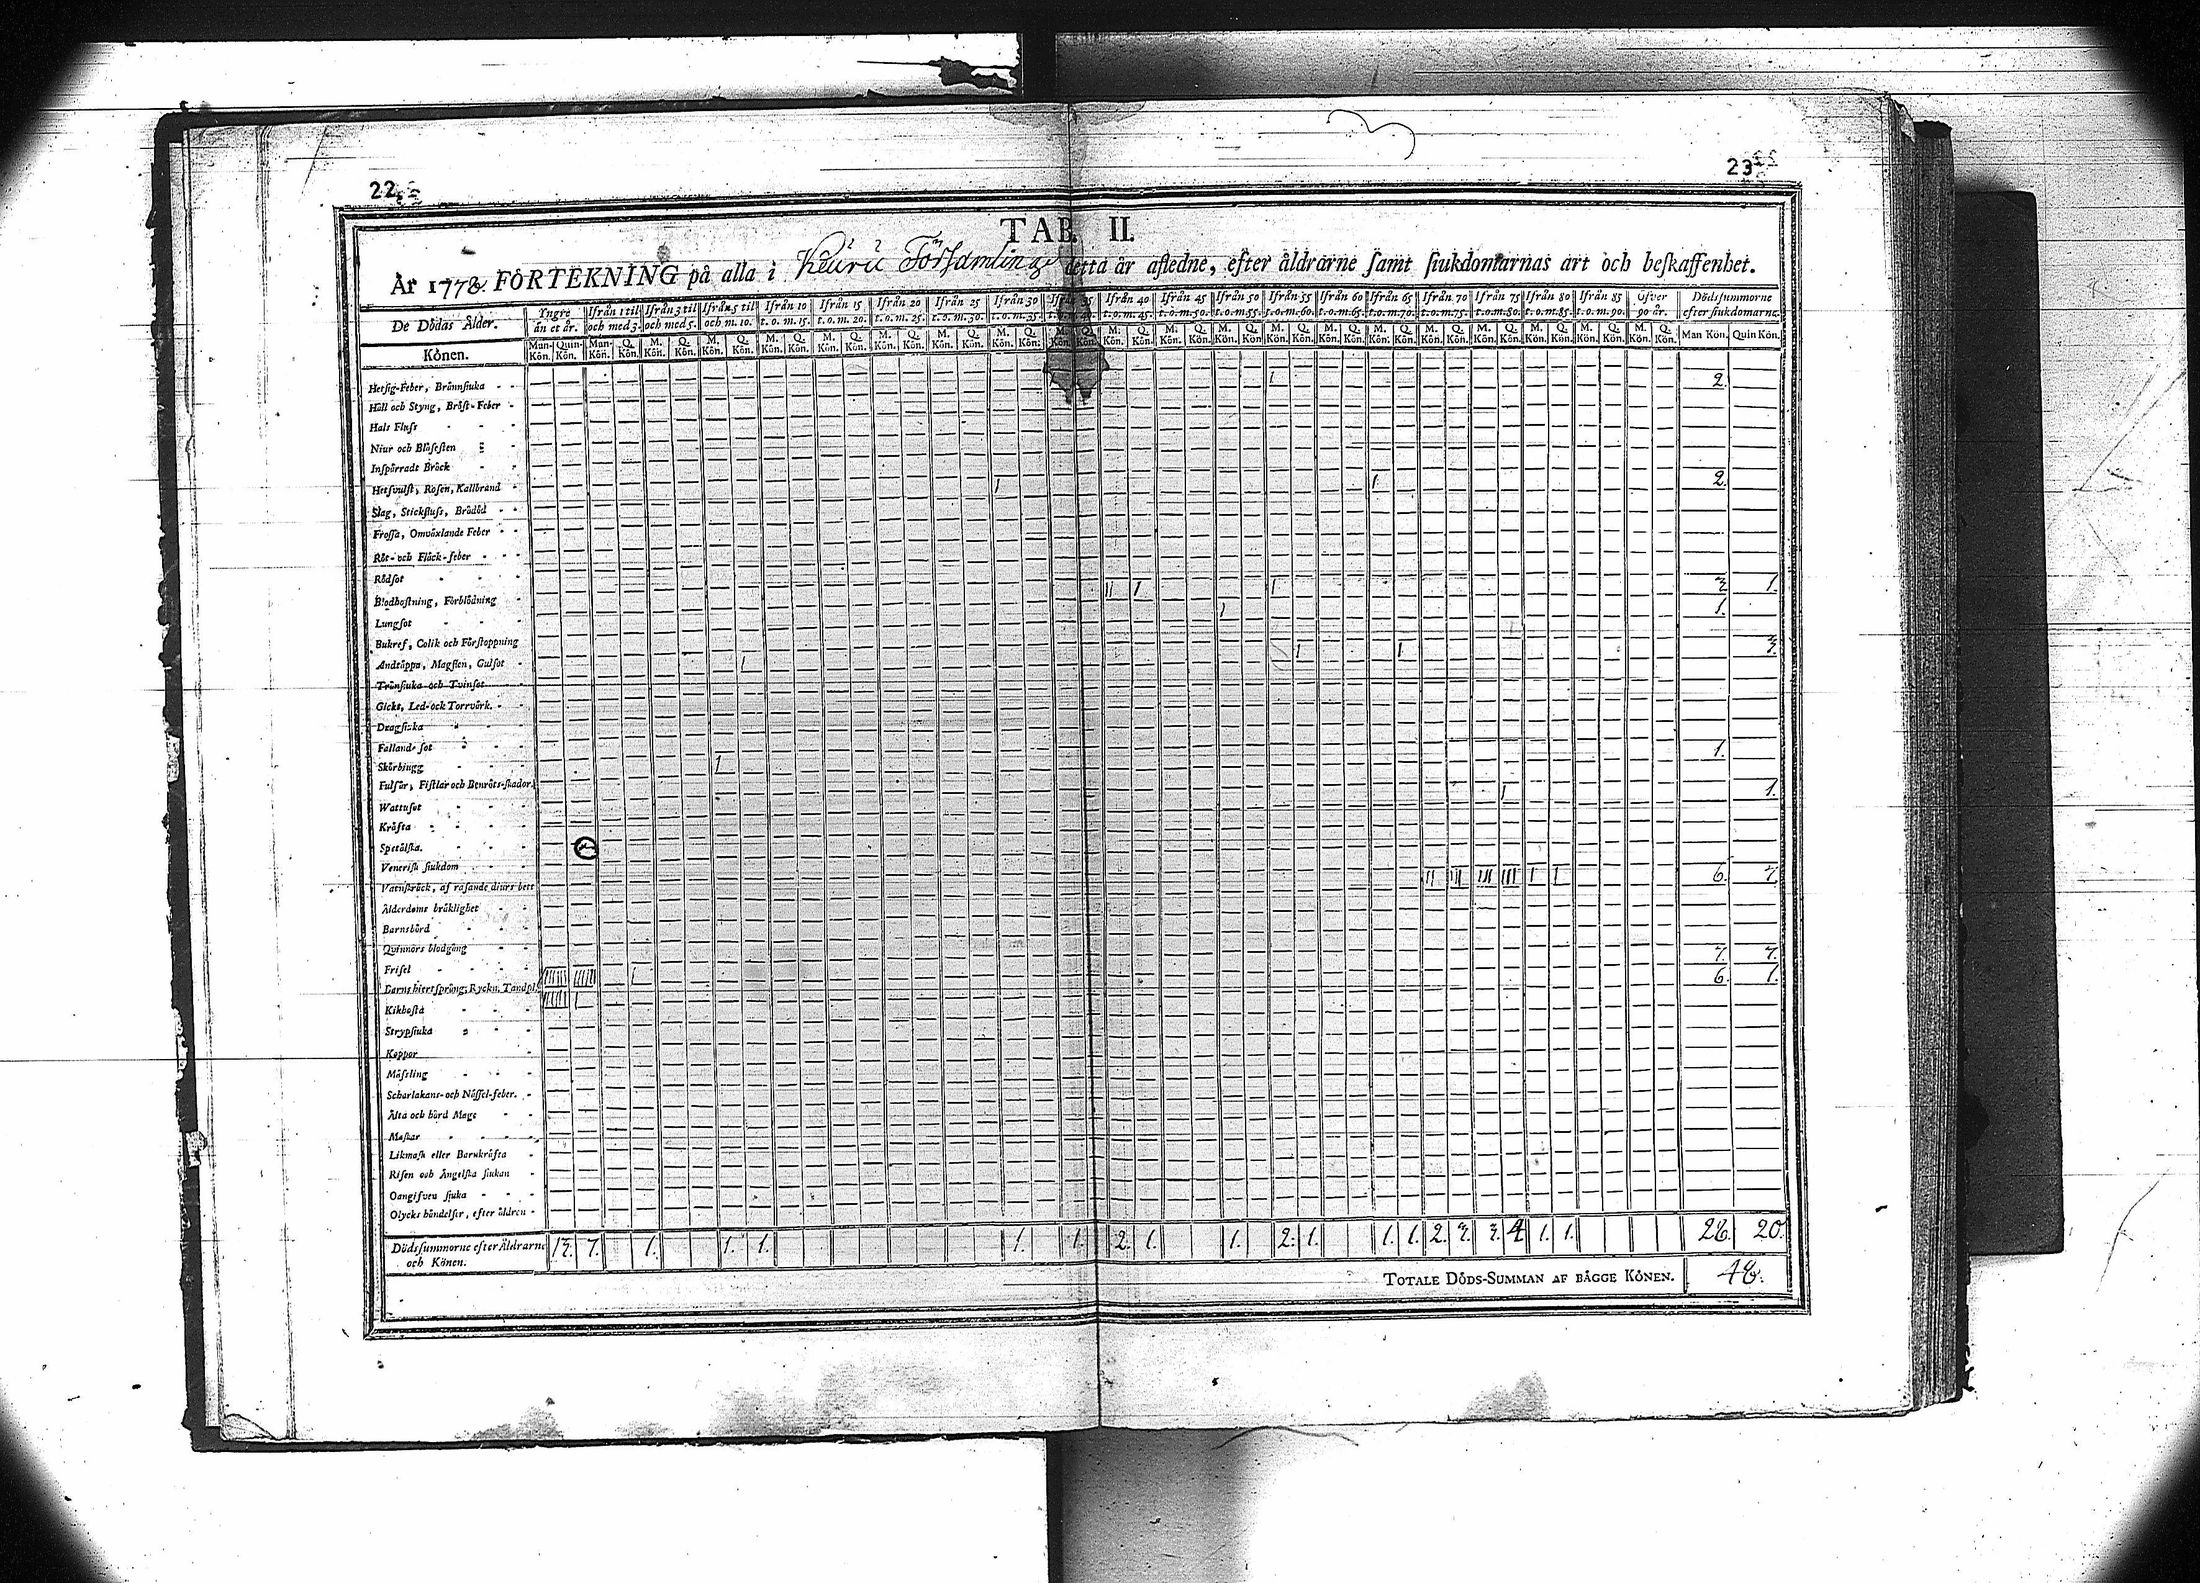 22
23
TAB. II.
År 1778. FÖRTEKNING på alla i Keuru Församling detta år afledne, efter åldrarne samt siukdomarnas art och beskaffenhet.
De Dödas Ålder. Yngre än et år. Ifrån 1 til och med 3. Ifrån 3 til och med 5. Ifrån 5 til och m. 10. Ifrån 10 t. o. m. 15. Ifrån 15 t. o. m. 20. Ifrån 20 t. o. m. 25. Ifrån 25 t. o. m. 30. Ifrån 30 t. o. m. 35. Ifrån 35 t. o. m. 40. Ifrån 40 t. o. m. 45. Ifrån 45 t. o. m. 50. Ifrån 50 t. o. m. 55. Ifrån 55 t. o. m. 60. Ifrån 60 t. o. m. 65. Ifrån 65 t. o. m. 70. Ifrån 70 t. o. m. 75. Ifrån 75 t. o. m. 80. Ifrån 80 t. o. m. 85. Ifrån 85 t. o. m. 90. Öfver 90 år. Dödssummorne efter siukdomarne.
Könen. Man-Kön. Quin-Kön. Man-Kön. Q. Kön. M. Kön. Q. Kön. M. Kön. Q. Kön. M. Kön. Q. Kön. M. Kön. Q. Kön. M. Kön. Q. Kön. M. Kön. Q. Kön. M. Kön. Q. Kön. M. Kön. Q. Kön. M. Kön. Q. Kön. M. Kön. Q. Kön. M. Kön. Q. Kön. M. Kön. Q. Kön. M. Kön. Q. Kön. M. Kön. Q. Kön. M. Kön. Q. Kön. M. Kön. Q. Kön. M. Kön. Q. Kön. M. Kön. Q. Kön. M. Kön. Q. Kön. Man Kön. Quin Kön.
Hetsig-Feber, Brännsiuka 1 2.
Håll och Styng, Bröst-Feber
Hals Fluss
Niur och Blåsesten
Inspärradt Bräck
Hetsvulst, Rosen, Kallbrand 1 1 2.
Slag, Stickfluss, Brådöd
Frossa, Omväxlande Feber
Röt- och Fläck-feber
Rödsot
Blodhostning, Förblödning 11 1 1 3 1.
Lungsot 1 1.
Bukref, Colik och Förstoppning
Andtäppa, Magsien, Gulsot 1 1 1 3.
Tränsiuka och Tvinsot
Gickt, Led- och Torrvärk.
Dragsiuka
Falland-sot 1.
Skörbiugg 1
Fulsår, Fistlar och Benröts-skador
Wattusot 1 1.
Kräfta
Spetälska.
Venerisk siukdom
Vatnskräck, af rasande diurs bett 11 111 111 111 1 1 6. 7.
Ålderdoms bräklighet
Barnsbörd
Quinnors blodgång
Frisel 7. 7.
Barns hiertsprång, Ryckn. Tandpl. 1 6. 1.
Kikhosta
Strypsiuka
Koppor
Mässling
Scharlakans- och Nässel-feber.
Älta och hård Mage
Maskar
Likmask eller Barnkräfta
Risen och Ängelska siukan
Oangifven siuka
Olycks händelser, efter åldren
Dödssummorne efter Åldrarne och Könen. 13. 7. 1. 1. 1. 1. 1. 2. 1. 1. 2. 1. 1. 1. 2. 3. 3. 4 1. 1. 28. 20.
TOTALE DÖDS-SUMMAN AF BÄGGE KÖNEN. 48.